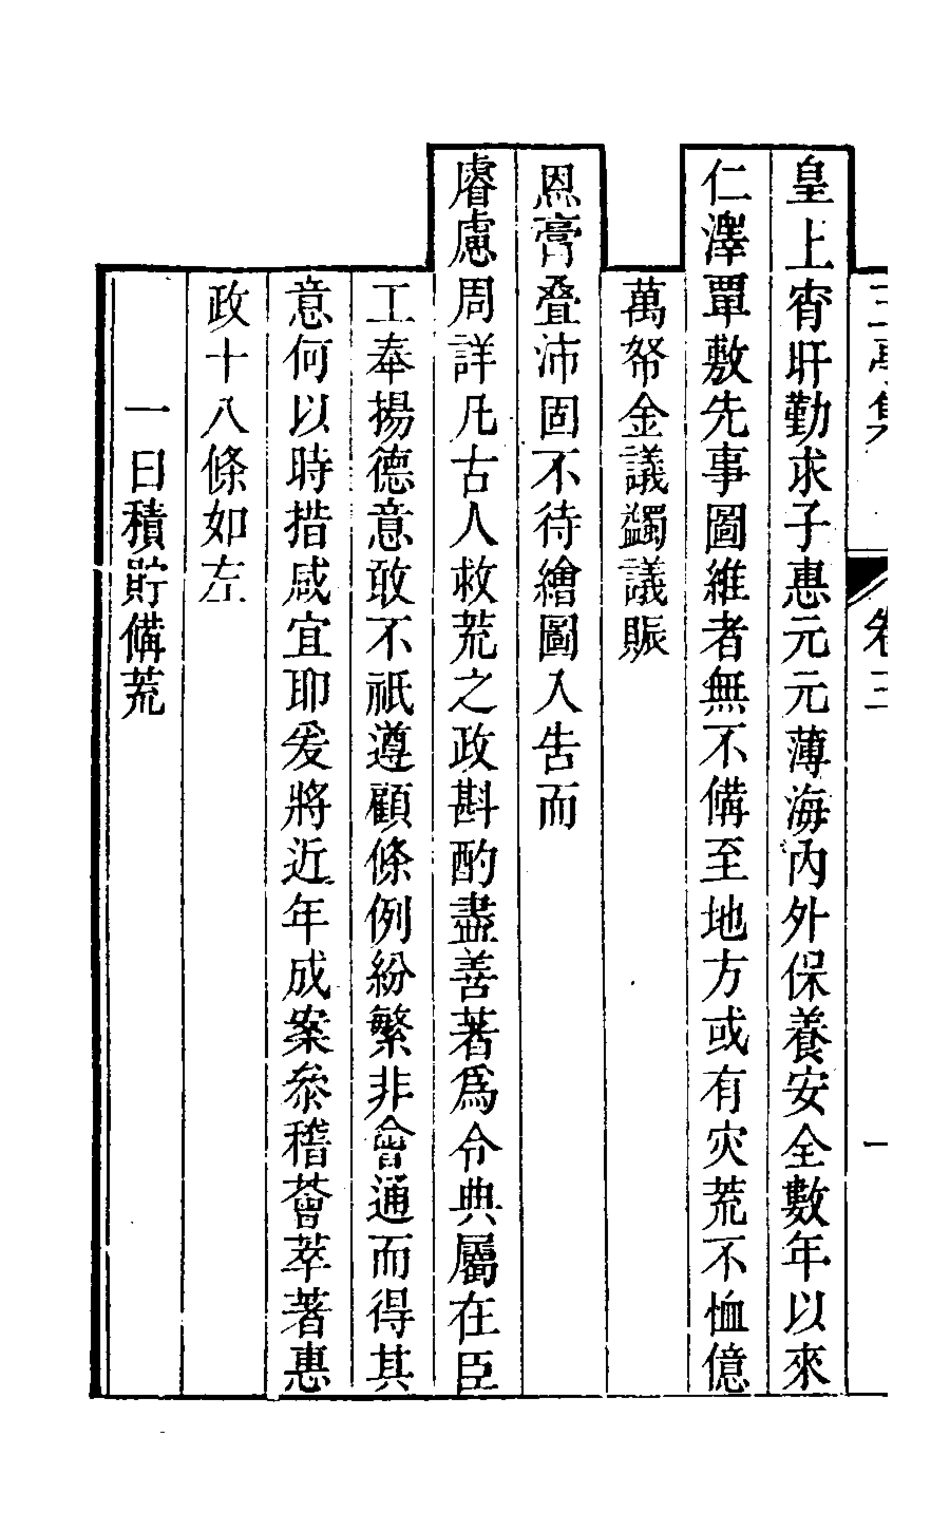 皇上宵旰勤求子惠元元薄海內外保養安全數年以來
仁澤覃敷先事圖維者無不備至地方或有灾荒不恤億
萬帑金議蠲議賑
恩膏叠沛固不待繪圖入告而
睿慮周詳凡古人救荒之政斟酌盡善著爲令典屬在臣
工奉揚德意敢不祇遵顧條例紛繁非會通而得其
意何以時措咸宜耶爰將近年成案叅稽薈萃著惠
政十八條如左
一曰積貯備荒
卷三
一